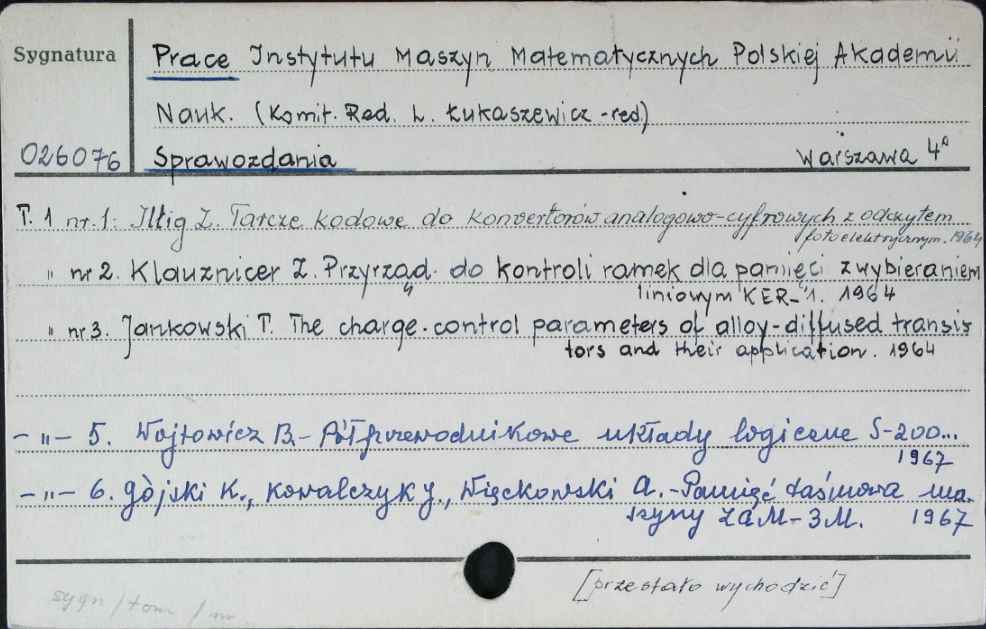 Sygnatura
Prace Instytutu Maszyn Matematycznych Polskiej Akademii
Nauk. (Komit. Red. L. Łukaszewicz - red.)
026076 Sprawozdania Warszawa 4°
T. 1 nr. 1: Illig Z. Tarcze kodowe do konwertorów analogowo-cyfrowych z odczytem
fotoelektrycznym. 1964
" nr 2. Klauznicer Z. Przyrząd do kontroli ramek dla pamięci z wybieraniem
liniowym KER-1. 1964
" nr 3. Jankowski T. The charge-control parameters of alloy-diffused transis
tors and their application. 1964
- " - 5. Wojtowicz B. - Półprzewodnikowe układy logiczne S-200...
1967
- " - 6. Gójski K., Kowalczyk J., Więckowski A. - Pamięć taśmowa ma-
szyny ZAM-3M. 1967
[przestało wychodzić]
sygn / tom / nr